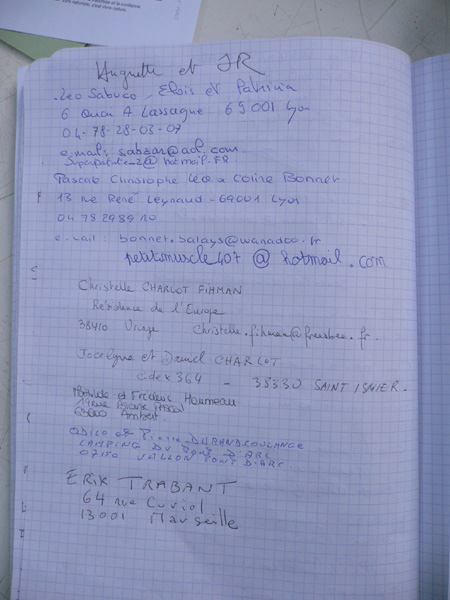 Huguette et JR
Leo Sabuco Eloïs et Patricia
6 Quai A Lassagne 69001 Lyon
04-78-28-03-07
e.mail: sabzar@aol.com
@hotmail.FR
Pascale Christophe Léo a Coline Bonnet
13 rue René Leynaud - 69001 Lyon
04 78 29 89 10
e-mail : bonnet.balays@wanadoo.fr
petitsmuscle407@hotmail.com
Christelle CHARLOT FIHMAN
Résidence de l'Europe
38410 Uriage Christelle.fihman@freesbee.fr.
Jocelyne et Daniel CHARLOT
cidex 364 - 38330 SAINT ISMIER.
Mathilde et Frédéric Houmeau
14 rue Blaise Pascal
63600 Ambert
ODILE et Pierre DURAND COULANGE
CAMPING DU PONT D'ARC
07150 VALLON PONT D'ARC
ERIK TRABANT
64 rue Curiol
13001 Marseille